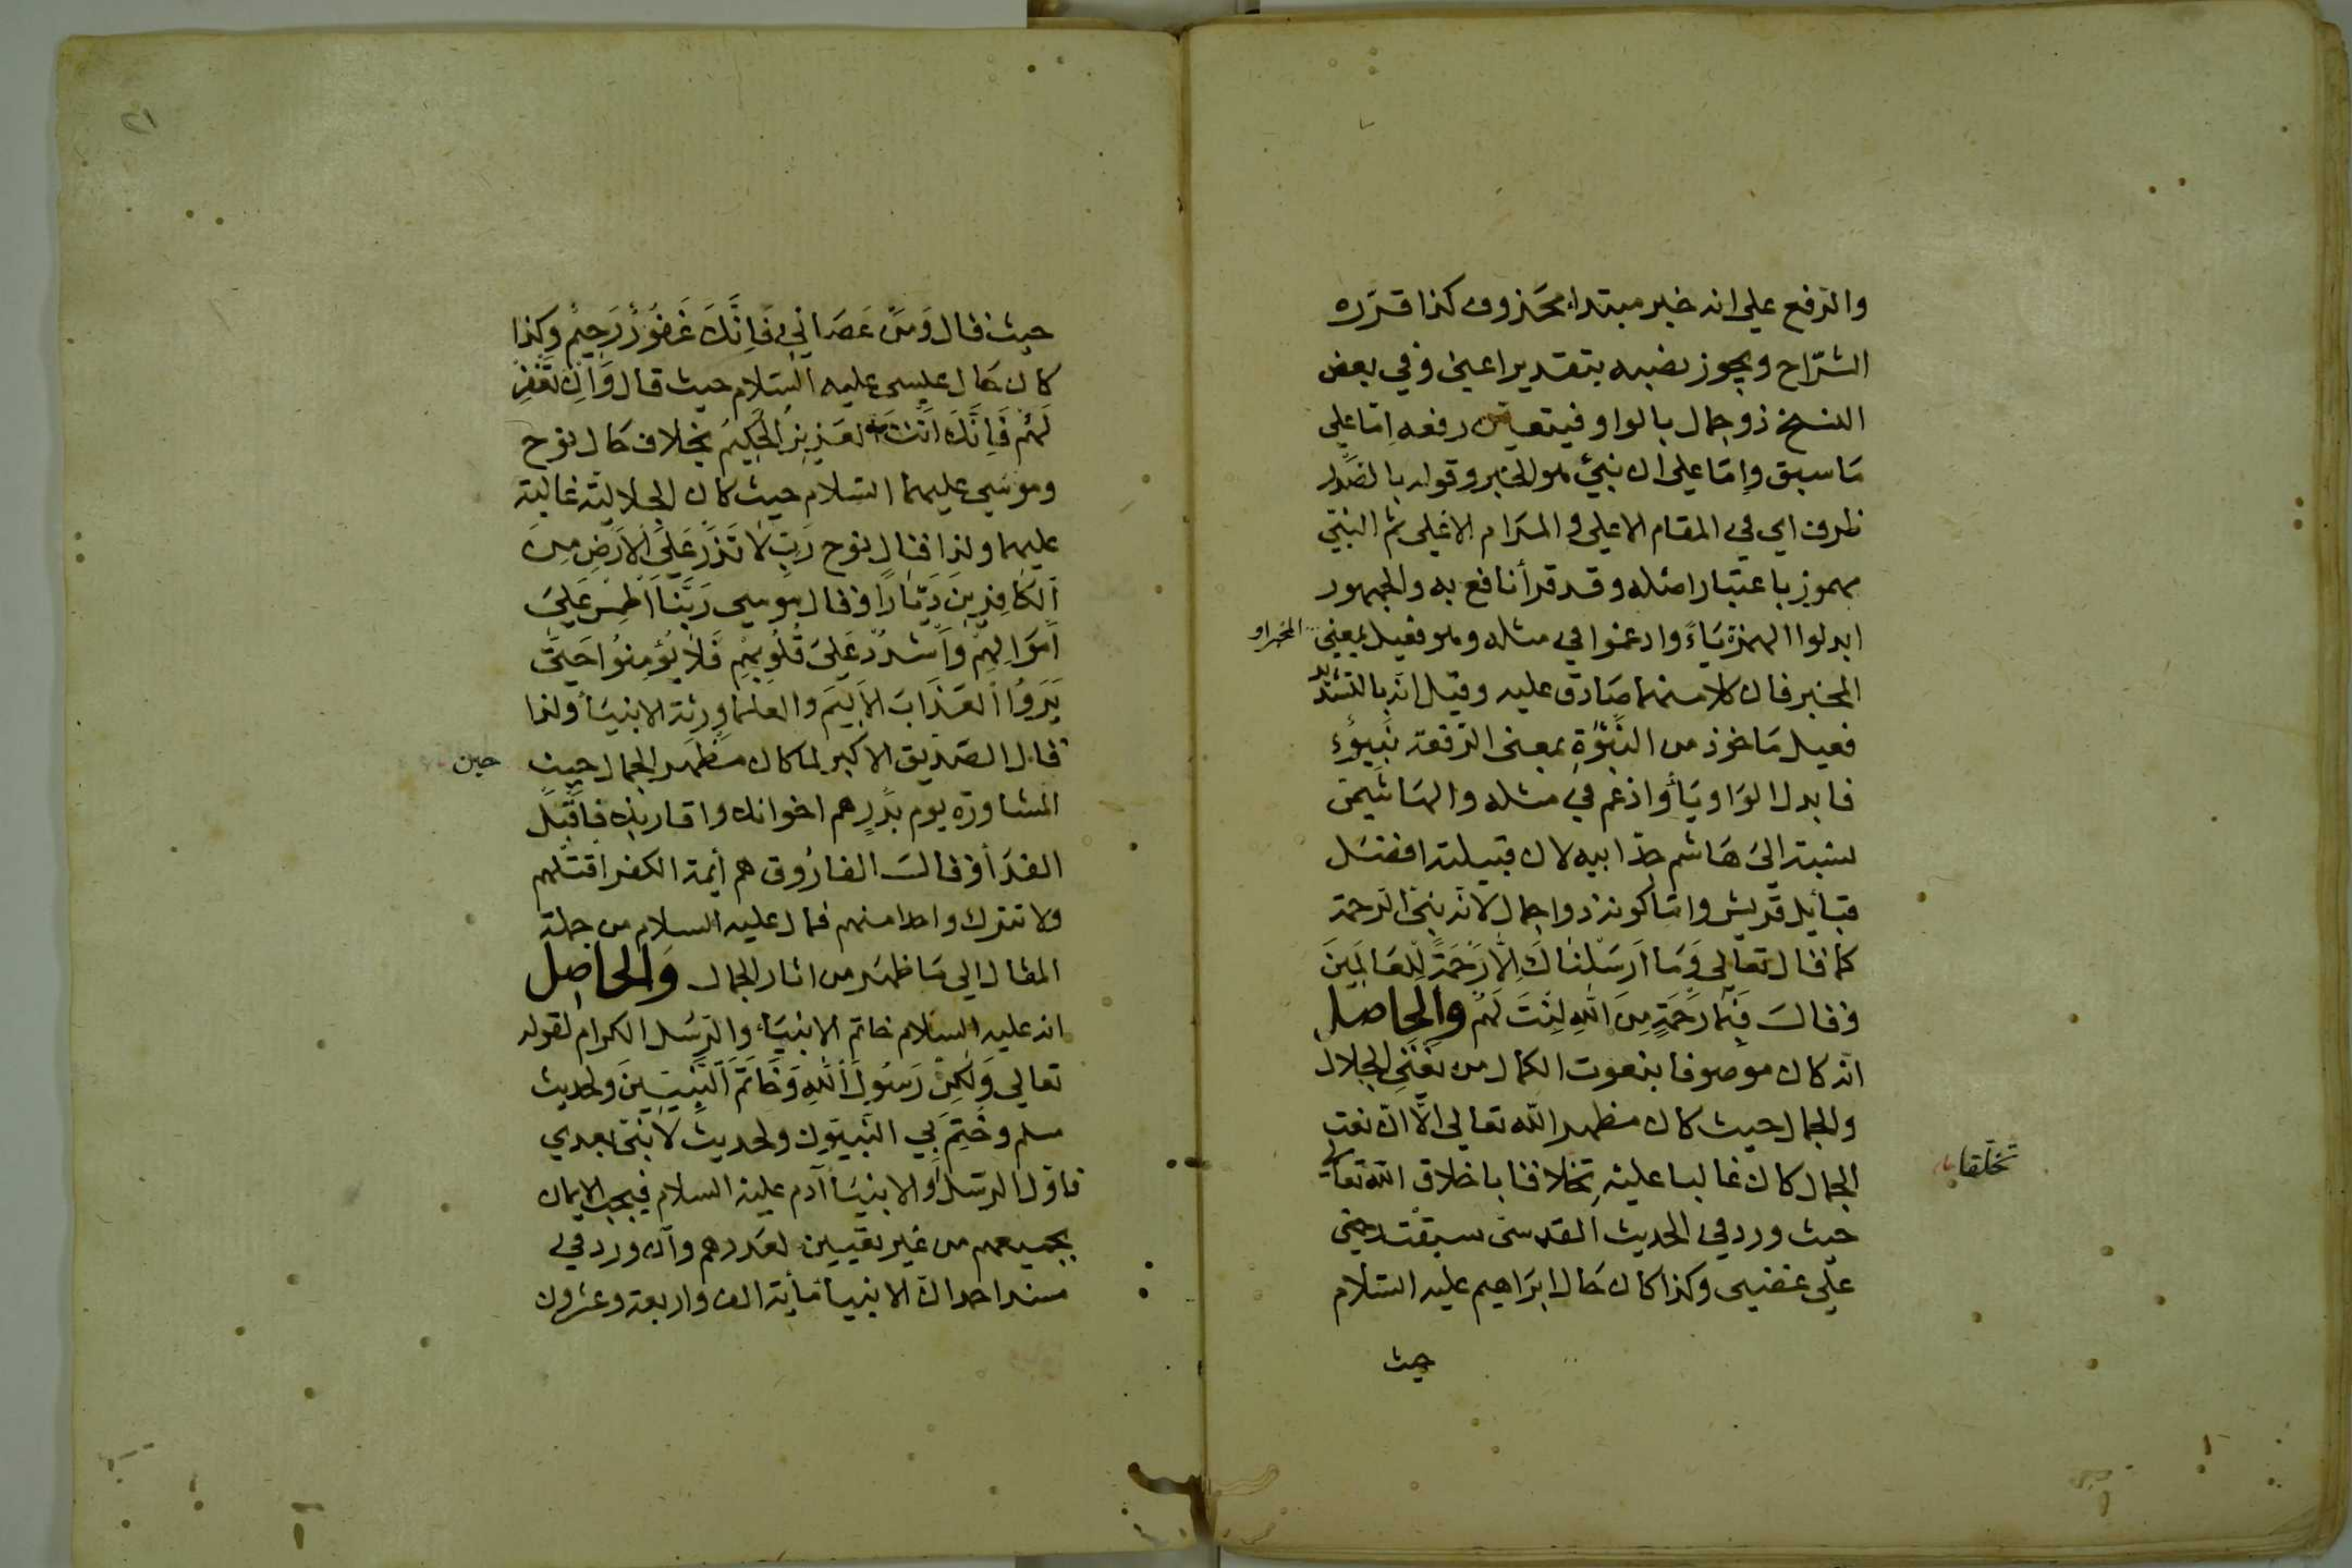 والرفع على انه خبر مبتداء محذوف كذا قرره
الشراح ويجوز نصبه بتقدير اعني وفي بعض
النسخ ذو جمال بالواو فيتعين رفعه إمّا على
ما سبق وإمّا على ان نبيّ هو الخبر وقوله بالصدر
ظرف اي في المقام الاعلى والمرام الاغلى ثم النبي
مهموز باعتبار اصله وقد قرأ نافع به والجمهور
ابدلوا الهمزة ياءً وادغموا في مثله وهو فعيل بمعنى
المخبر او
المخبر فان كلا منهما صادق عليه وقيل انه بالتشديد
فعيل ماخوذ من النَّبْوَةِ بمعنى الرفعة نَبِيوٌ
فابدل الواو ياءً وادغم في مثله والهاشيمي
نسبة الى هاشم جدّ ابيه لان قبيلته افضل
قبايل قريش وامّا كونه ذوا جمال لانه نبيّ الرحمة
كما قال تعالى وَمَا اَرسَلْنَاكَ اِلَّا رَحْمَةً لِلْعَالَمِينَ
وقال فَبِمَا رَحْمَةٍ مِنَ اللهِ لِنْتَ لَهُمْ والحاصل
انّه كان موصوفا بنعوت الكمال من نعتي الجلال
والجمال حيث كان مظهر الله تعالى الّا انّ نعت
الجمال كان غالبا عليه تخلاقا باخلاق الله تعالى
تخلّقا
حيث ورد في الحديث القدسي سبقت رحمتي
على غضبي وكذا كان حال ابراهيم عليه السلام
حيث
٢١
حيث قال وَمَنْ عَصَانِي فَاِنَّكَ غَفُورٌ رَحِيمٌ وكذا
كان حال عيسى عليه السلام حيث قال وَاِنْ تَغْفِرْ
لَهُمْ فَاِنَّكَ اَنْتَ العَزِيزُ الْحَكِيمُ بخلاف حال نوح
وموسى عليهما السلام حيث كان الجلالية غالبة
عليهما ولذا قال نوح رَبِّ لَا تَذَرْ عَلَى الْاَرْضِ مِنَ
الْكَافِرِينَ دَيَّارًا وقال موسى رَبَّنَا اطْمِسْ عَلَى
اَمْوَالِهِمْ وَاشْدُدْ عَلَى قُلُوبِهِمْ فَلَا يُؤْمِنُوا حَتَّى
يَرَوُا الْعَذَابَ الْاَلِيمَ والعلماء ورثة الانبياء ولذا
قال الصديق الاكبر لما كان مظهر الجمال حيث
حين
المشاورة يوم بدر هم اخوانك واقاربك فاقبل
الفداء وقال الفاروق هم أئمة الكفر اقتلهم
ولا تترك واحدا منهم فمال عليه السلام من جملة
المقال الى ما ظهر من اثار الجمال والحاصل
انه عليه السلام خاتم الانبياء والرسل الكرام لقوله
تعالى وَلٰكِنْ رَسُولَ اللهِ وَخَاتَمَ النَّبِيِّينَ ولحديث
مسلم وخُتِمَ بي النبيّون ولحديث لا نبيّ بعدي
فاوّل الرسل والانبياء آدم عليه السلام فيجب الايمان
بجميعهم من غير تعيين لعددهم وان ورد في
مسند احمد انّ الانبياء مأية الف واربعة وعشرون